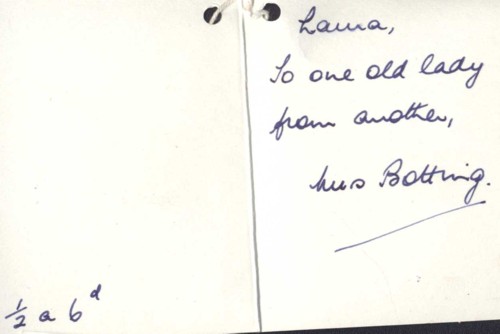 Laura,
To one old lady
from another,
Mrs Botting.
½ a 6ᵈ